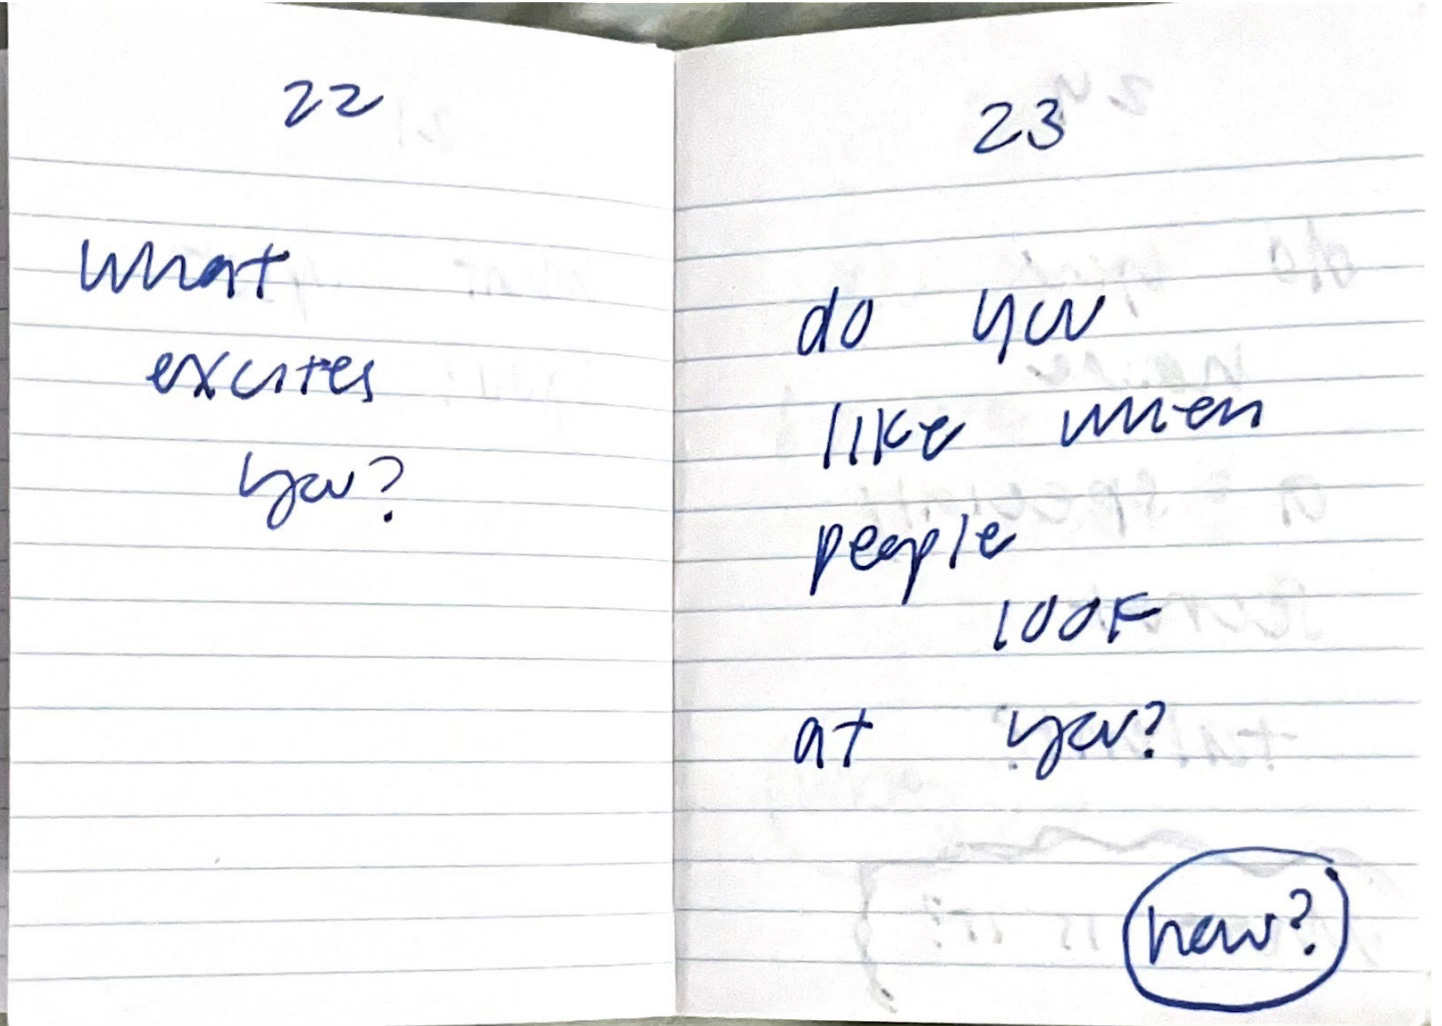 22
what
excites
you?
23
do you
like when
people
look
at you?
how?